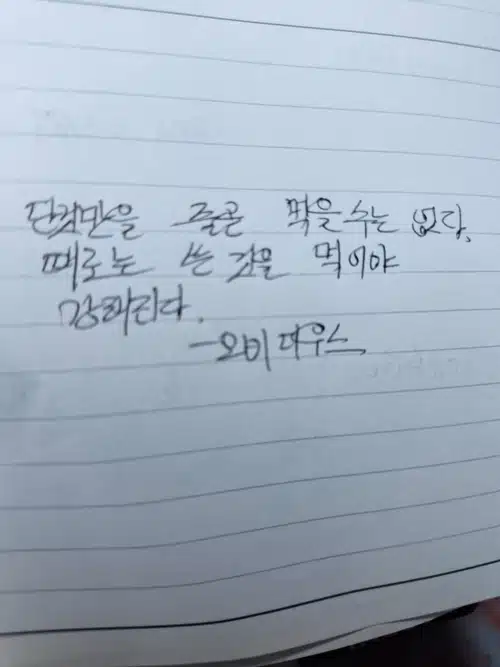 단것만을 줄곧 먹을수는 없다.
때로는 쓴 것을 먹어야
강해진다.
-오비디우스